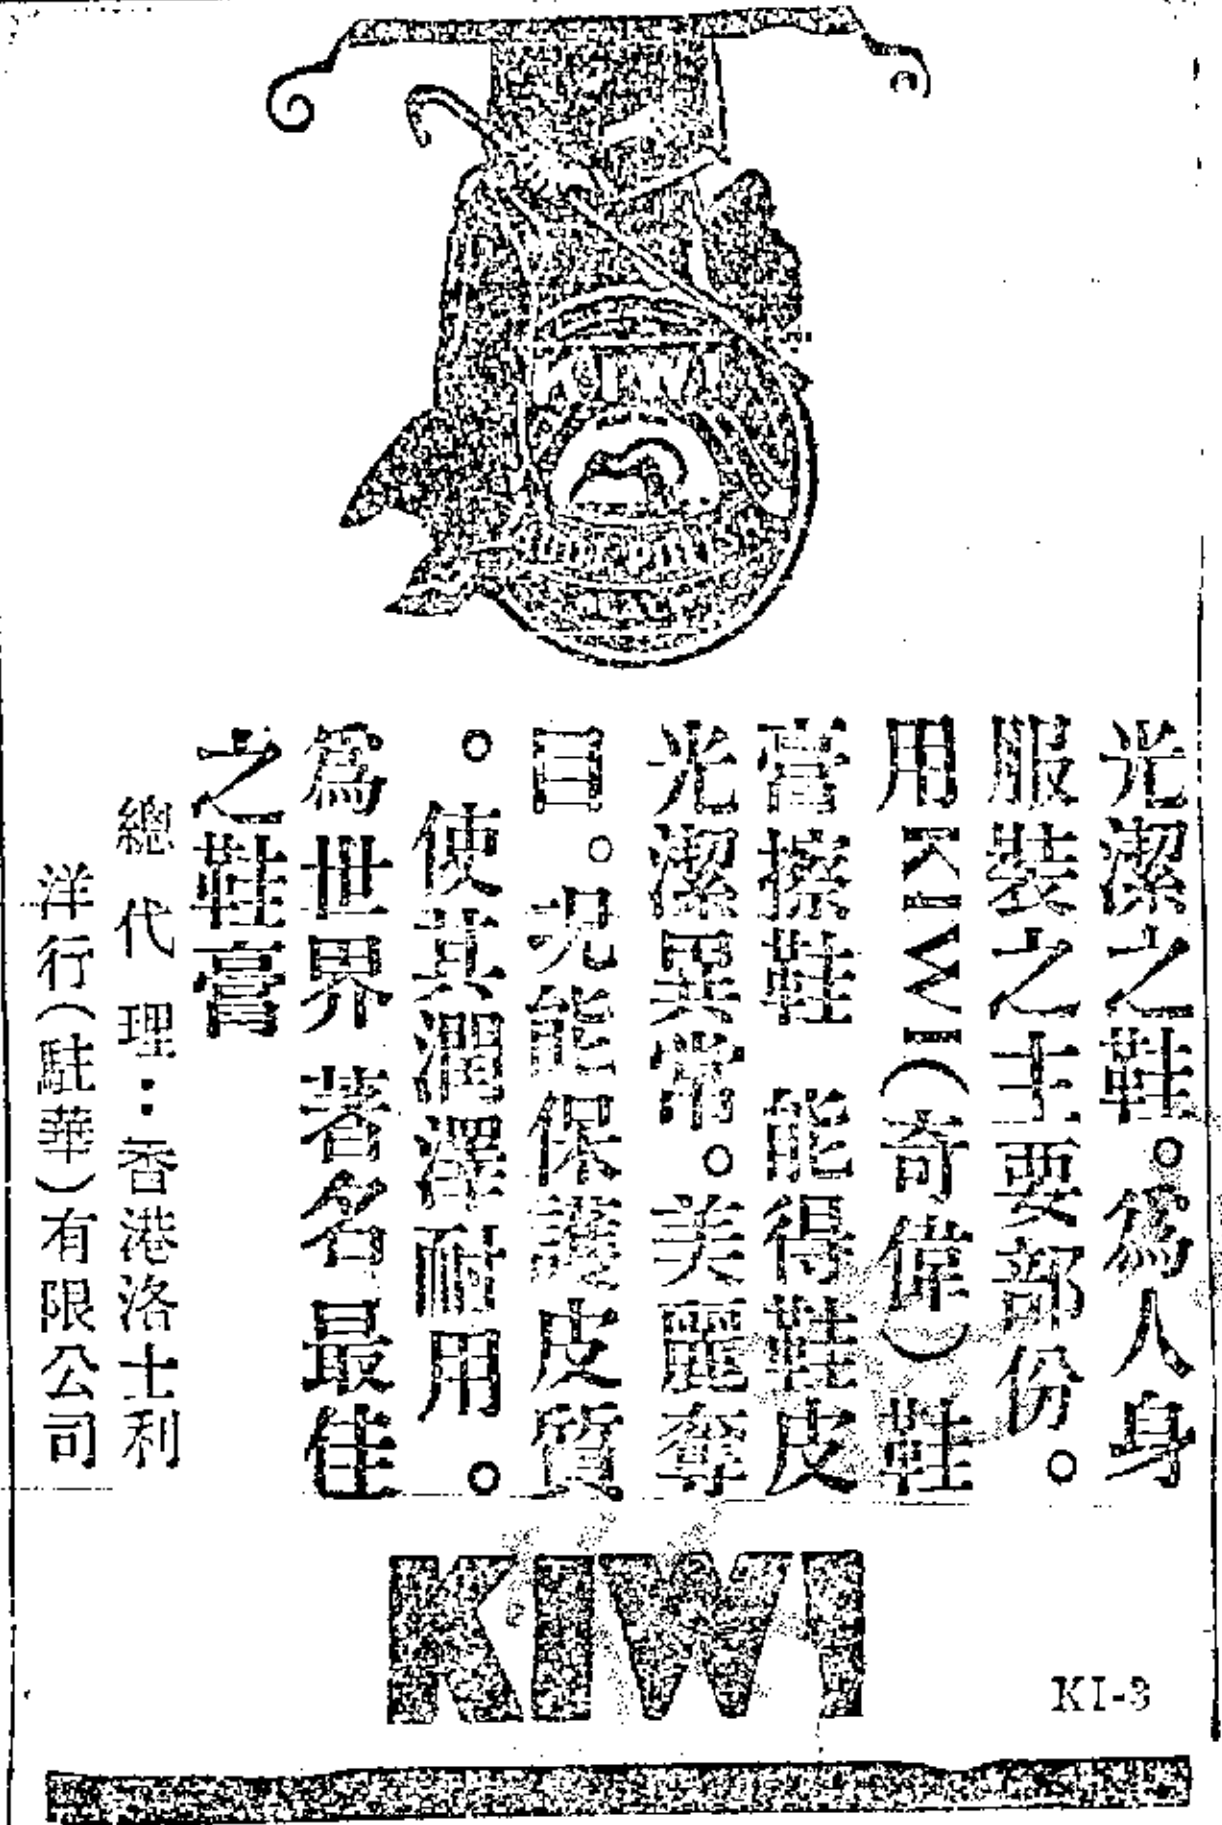 KIWI
光潔之鞋。爲人身
服裝之主要部份。
用KIWI(奇偉)鞋
膏擦鞋 能得鞋皮
光潔異常。美麗奪
目。尤能保護皮質
。使其潤澤耐用。
爲世界著名最佳
之鞋膏
總代理：香港洛士利
洋行(駐華)有限公司
KIWI